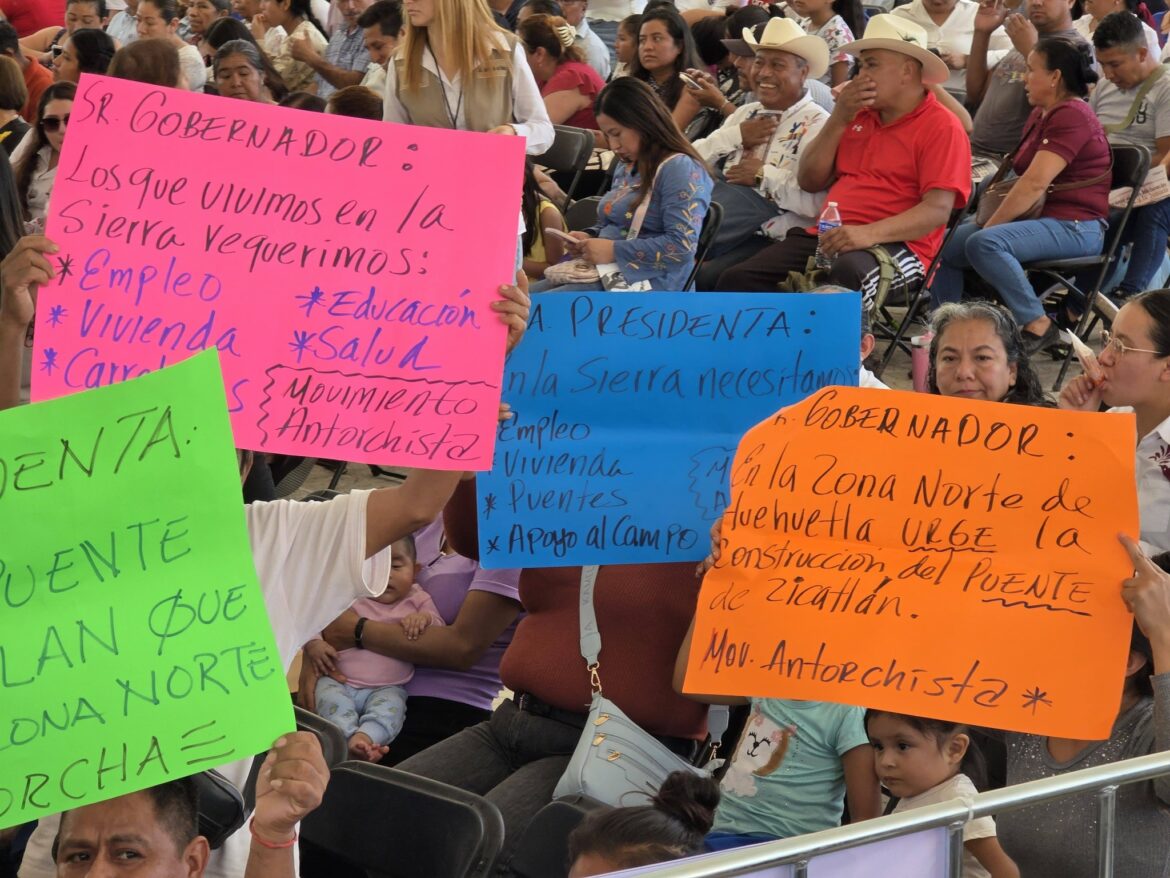 SR. GOBERNADOR:
Los que vivimos en la
Sierra requerimos:
* Empleo
* Vivienda
* Educación
* Salud
Movimiento
Antorchista
A. PRESIDENTA:
En la Sierra necesitamos
Empleo
Vivienda
* Puentes
* Apoyo al Campo
R. GOBERNADOR:
En la Zona Norte de
Huehuetla URGE la
Construcción del PUENTE
de Zicatlán.
Mov. Antorchista *
DENTA:
PUENTE
LAN QUE
ZONA NORTE
ORCHA